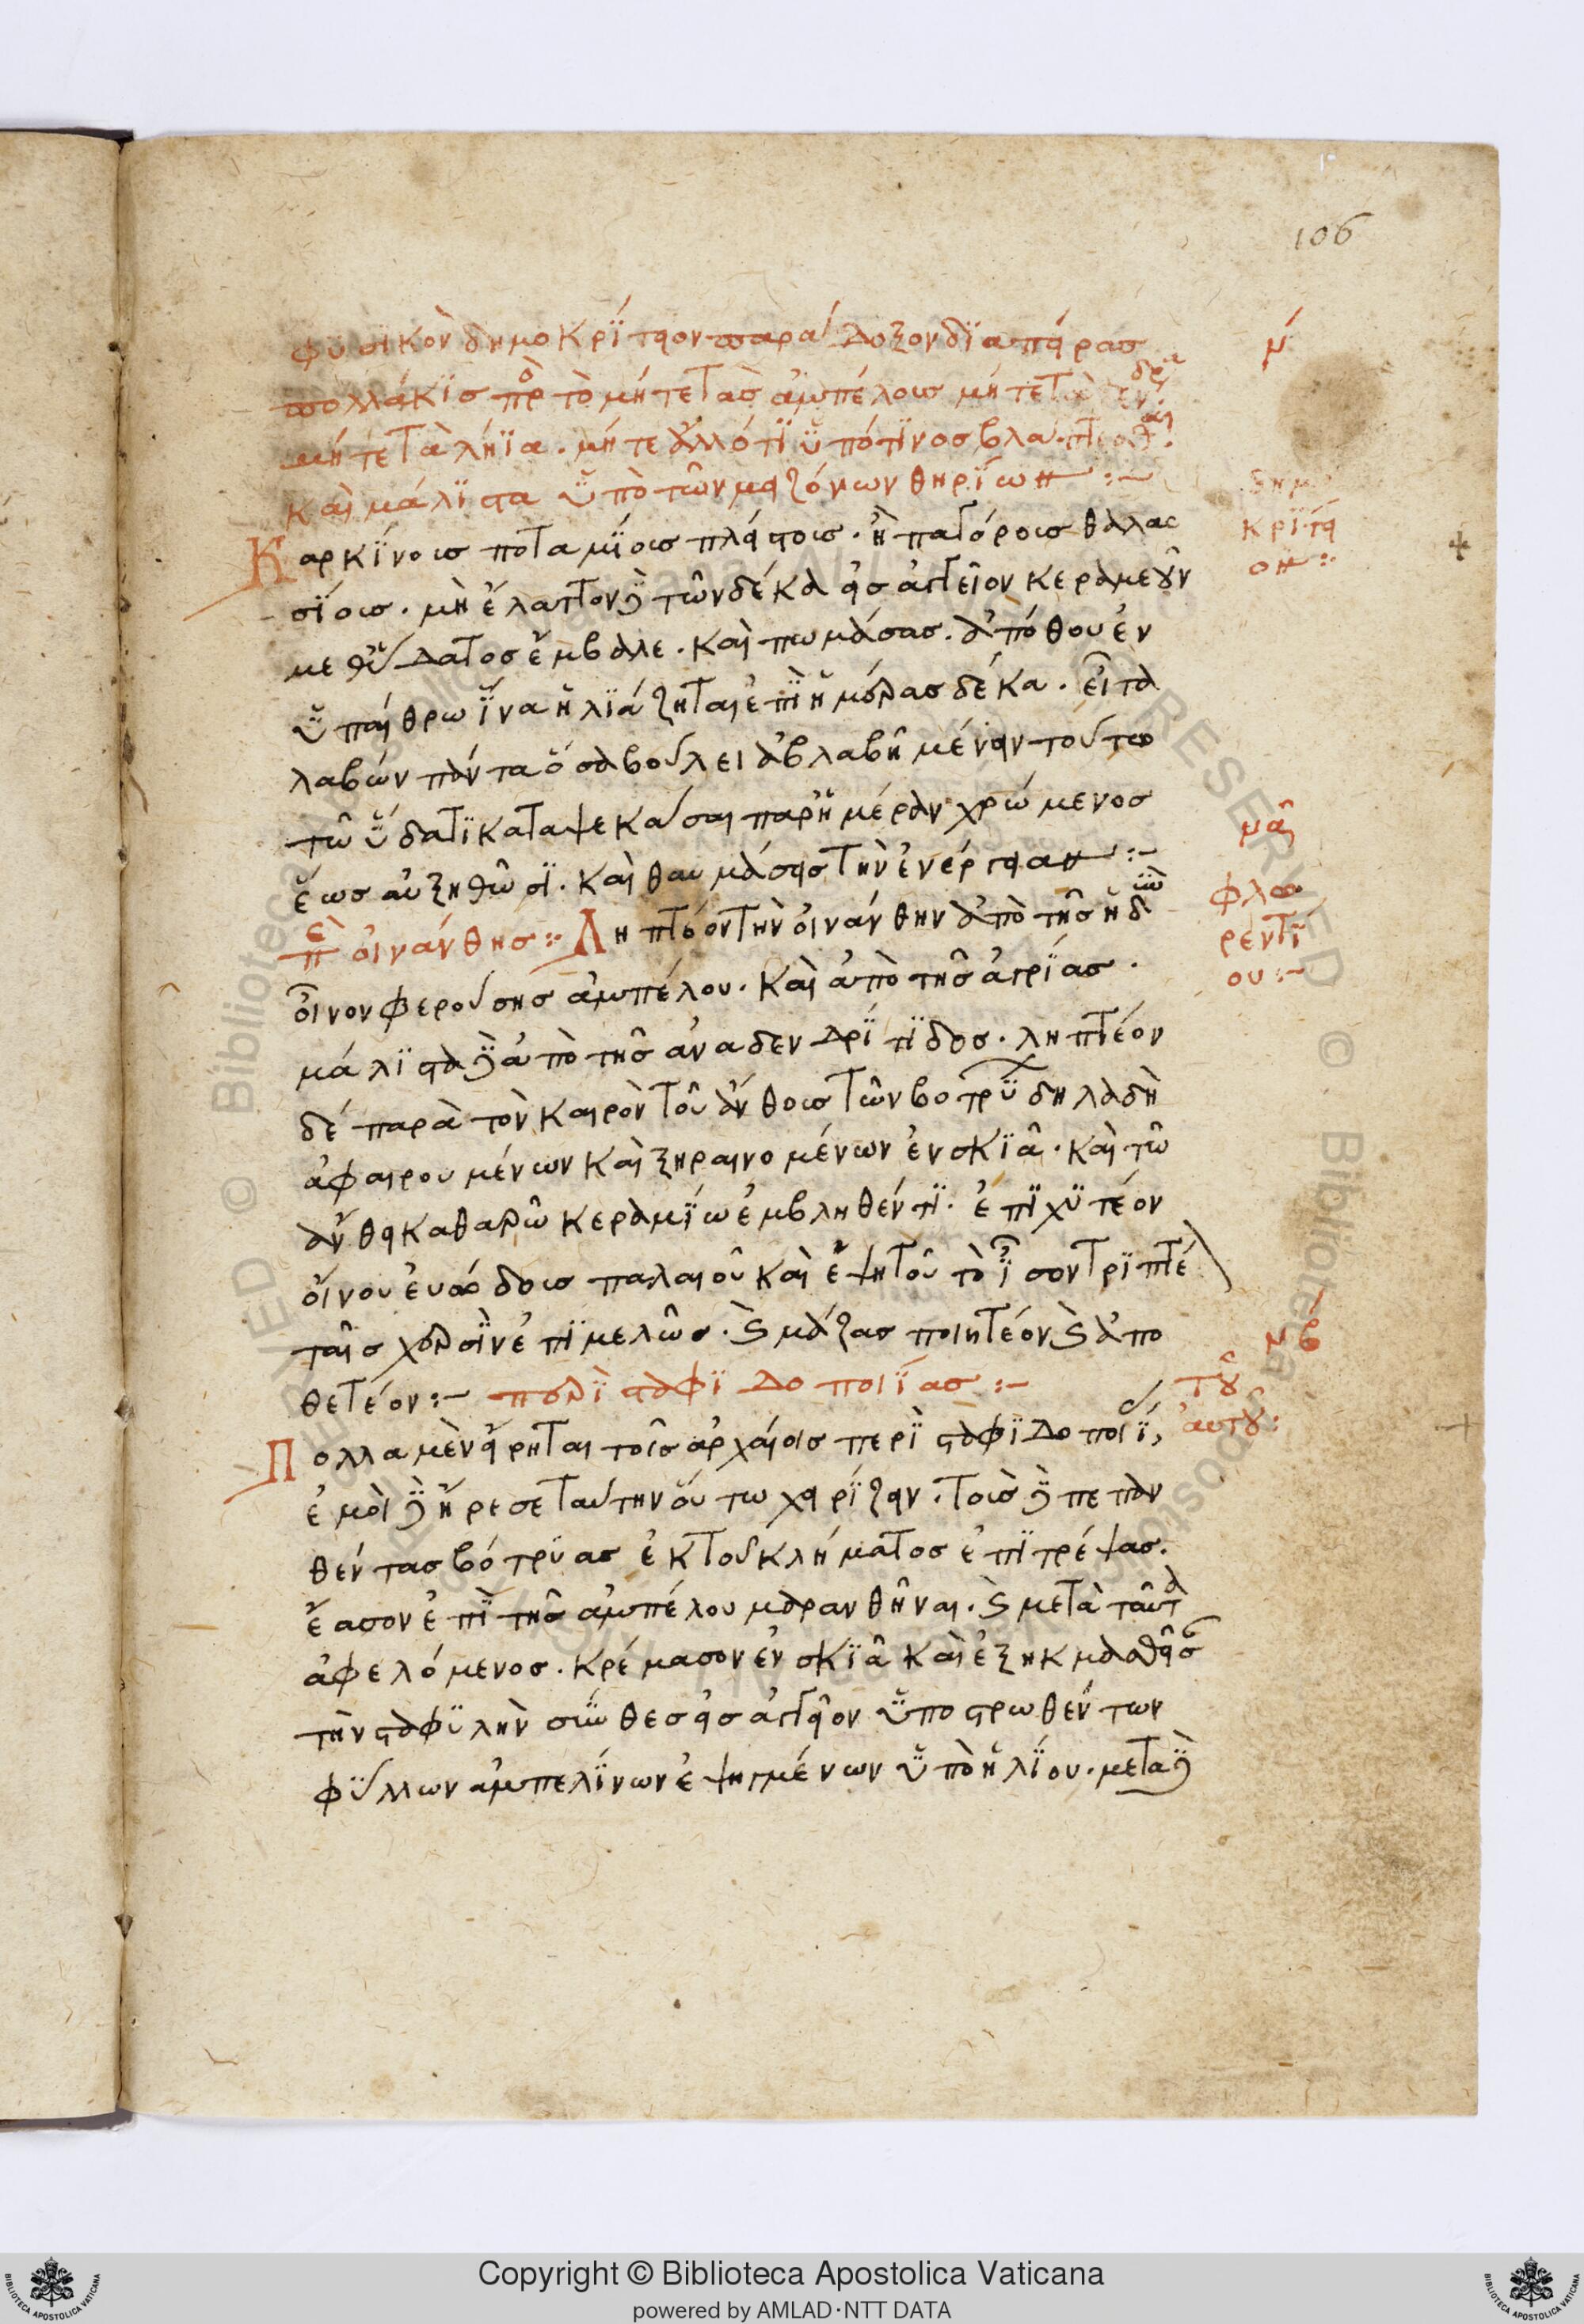 106
φυσικὸν δημοκρίτειον παράδοξον διὰ πείρας
μ
πολλάκις πρ̀ὸ τὸ μήτε τὰς ἀμπέλους μήτε τὰ δένδρα
μήτε τὰ λήϊα. μήτε ἄλλό τι ὑπό τινος βλάπτεσθαι.
καὶ μάλιστα ὑπὸ τῶν μειζόνων θηρίων :~
Καρκίνοις ποταμίοις πλείστοις. ἢ παγούροις θαλασ
κρίτει
ον :·
σίοις. μὴ ἔλαττον δὲ τῶν δέκα εἰς ἀγγεῖον κεραμεοῦν
μεθ' ὕδατος ἔμβαλε. καὶ πωμάσας. ἀπόθου ἐν
ὑπαίθρω ἵνα ἡλιάζηται ἐπὶ ἡμέρας δέκα. εἶτα
λαβὼν πάντα ὅσα βούλει ἀβλαβῆ μένειν τούτω
τῶ ὕδατι καταψεκάσαι παρ' ἡμέραν χρώμενος
μα
ἕως αὐξηθῶσι. καὶ θαυμάσεις τὴν ἐνέργειαν :~
φλω
ρεντί
ου :~
πε οἰνάνθης :· Ληπτέον τὴν οἰνάνθην ἀπὸ τῆς ἡδὺν
οἶνον φερούσης ἀμπέλου. καὶ ἀπὸ τῆς ἀγρίας.
μάλιστα δὲ ἀπὸ τῆς ἀναδενδρίτιδος. ληπτέον
δέ παρὰ τὸν καιρὸν τοῦ ἄνθους τῶν βοτρύων δηλαδὴ
ἀφαιρουμένων καὶ ξηραινομένων ἐν σκιᾶ. καὶ τῶ
ἄνθει καθαρῶ κεραμίω ἐμβληθέντι. ἐπιχυτέον
οἴνου εὐώδους παλαιοῦ καὶ ἑψητοῦ τὸ ἶσον τριπτέ
ταῖς χερσὶν ἐπιμελῶς. καὶ μάζας ποιητέον καὶ ἀπο
μβ
θετέον :~ περὶ σταφιδοποιίας :~
τοῦ
αὐτοῦ :
Πολλα μὲν εἴρηται τοῖς ἀρχαίοις περὶ σταφιδοποιίας,
ἐμοὶ δὲ ἤρεσε ταύτην οὕτω χειρίζειν. τοὺς δὲ πεπαν
θέντας βότρυας ἐκ τοῦ κλήματος ἐπιτρέψας.
ἔασον ἐπὶ τῆς ἀμπέλου μαρανθῆναι. καὶ μετὰ ταῦτα
ἀφελόμενος. κρέμασον ἐν σκιᾶ καὶ ἐξηκμασθεῖσ
τὴν σταφυλὴν σύνθες εἰς ἀγγεῖον ὑποστρωθέντων
φύλλων ἀμπελίνων ἐψηγμένων ὑπὸ ἡλίου. μετα δὲ
Copyright © Biblioteca Apostolica Vaticana
powered by AMLAD·NTT DATA